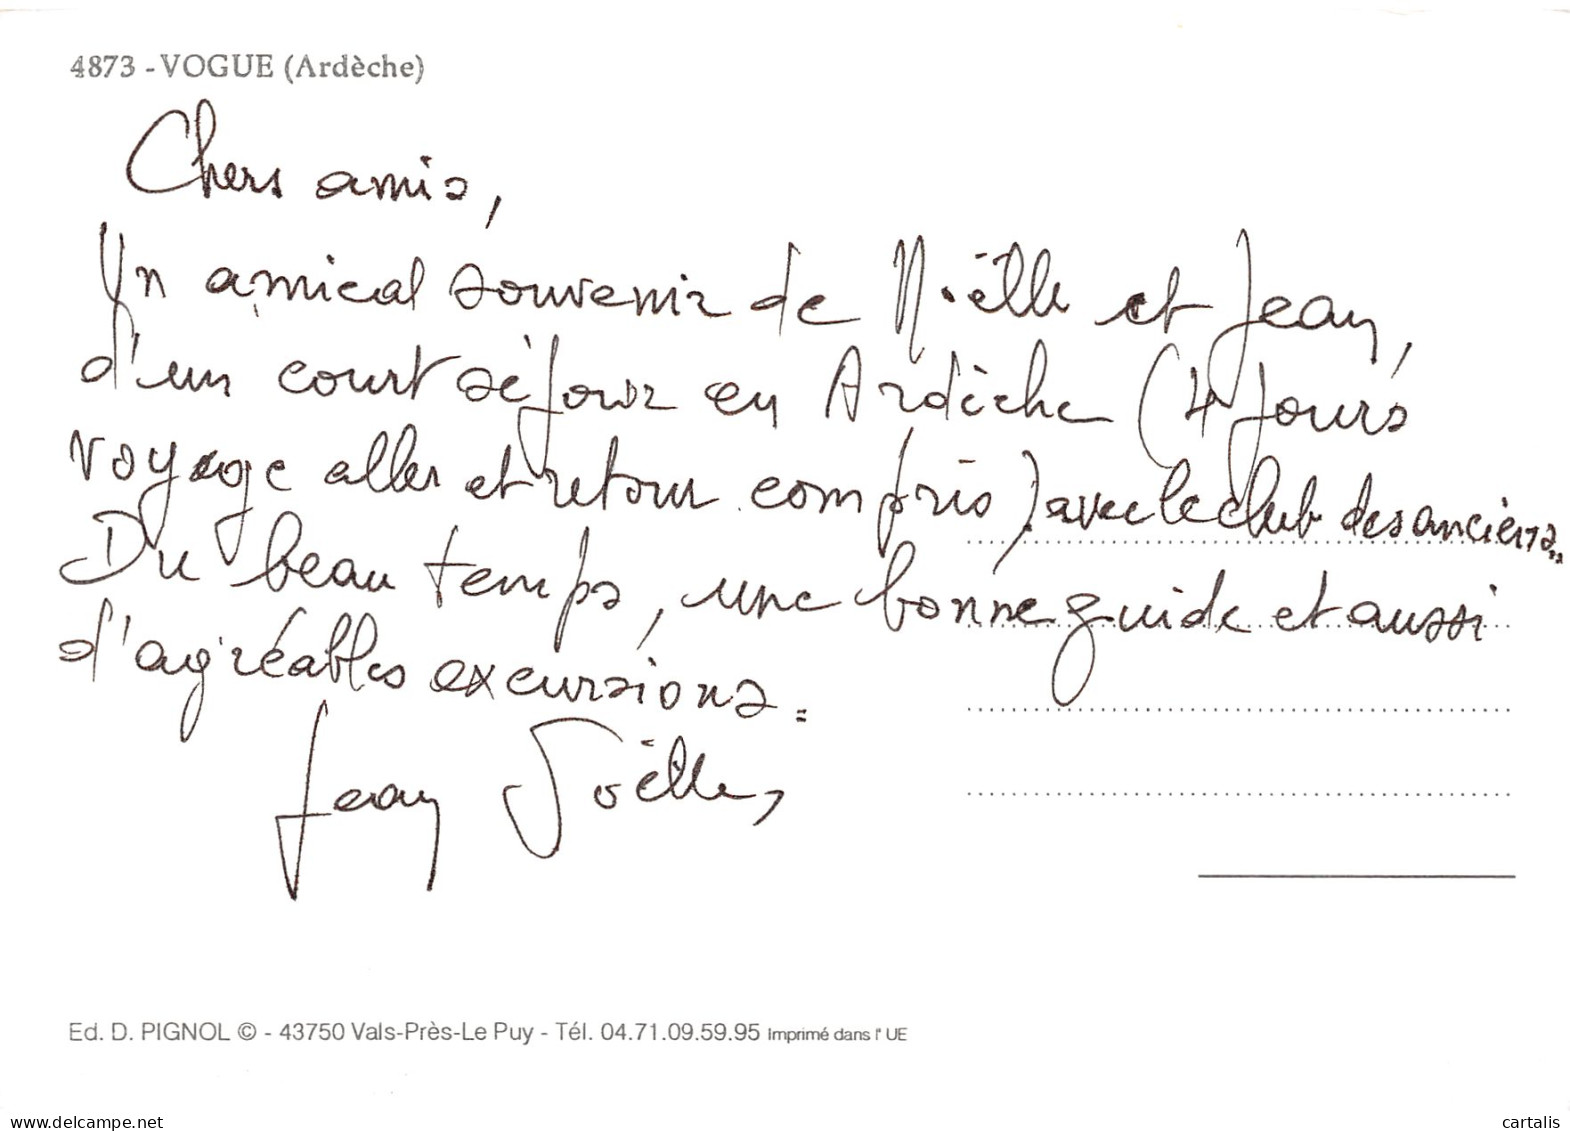 4873 - VOGUE (Ardèche)
Chers amis,
Un amical souvenir de Noëlle et Jean,
d'un court séjour en Ardèche (4 jours
voyage aller et retour compris) avec le club des anciens..
Du beau temps, une bonne guide et aussi
d'agréables excursions.
Jean Noëlle,
Ed. D. PIGNOL © - 43750 Vals-Près-Le Puy - Tél. 04.71.09.59.95 Imprimé dans l' UE
https://www.delcampe.net
cartalis